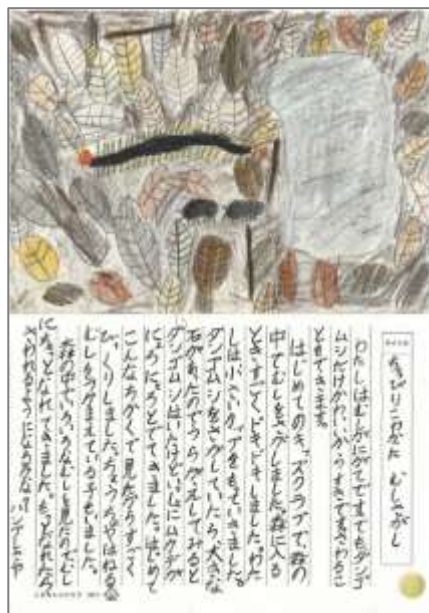 むしさがし
わたしはむしがにがてです。でもダンゴ
ムシだけかわいいからすきでさわるこ
ともできます。
はじめてのキッズクラブで、森の
中でむしをさがしました。森に入る
ときすごくドキドキしました。わた
しは小さいカップをもっていきました。
ダンゴムシをさがしていたら、大きな
石があったのでうらがえしてみると
ダンゴムシはいたけど ムカデが
にょろにょろとでてきました。はじめて
こんなちかくで見たからすごく
びっくりしました。ちょうちょやはねる
むしをつかまえている子もいました。
森の中でいろいろなむしを見たのでむし
にちょっとなれてきました。もっとなれたら
さわれるようになるかな